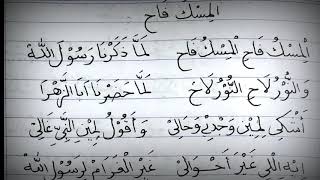 اَلْمِسْكْ فَاحْ
اَلْمِسْكُ فَاحْ اَلْمِسْكُ فَاحْ لَمَّا ذَكَرْنَا رَسُوْلَ اللهْ
وَالنُّوْرُ لَاحْ النُّوْرُ لَاحْ لَمَّا حَضَرْنَا اَبَا الزَّهْرَا
اَشْكِى لِمِيْن وَحْدِيْ وَحَالِيْ وَاَقُوْلُ لِمِيْنِ النَّبِيْ غَالِيْ
اِيْهِ اللِّي غَيَّرَ اَحْوَالِيْ غَيْرَ الْغَرَامْ لِرَسُوْلِ اللهْ